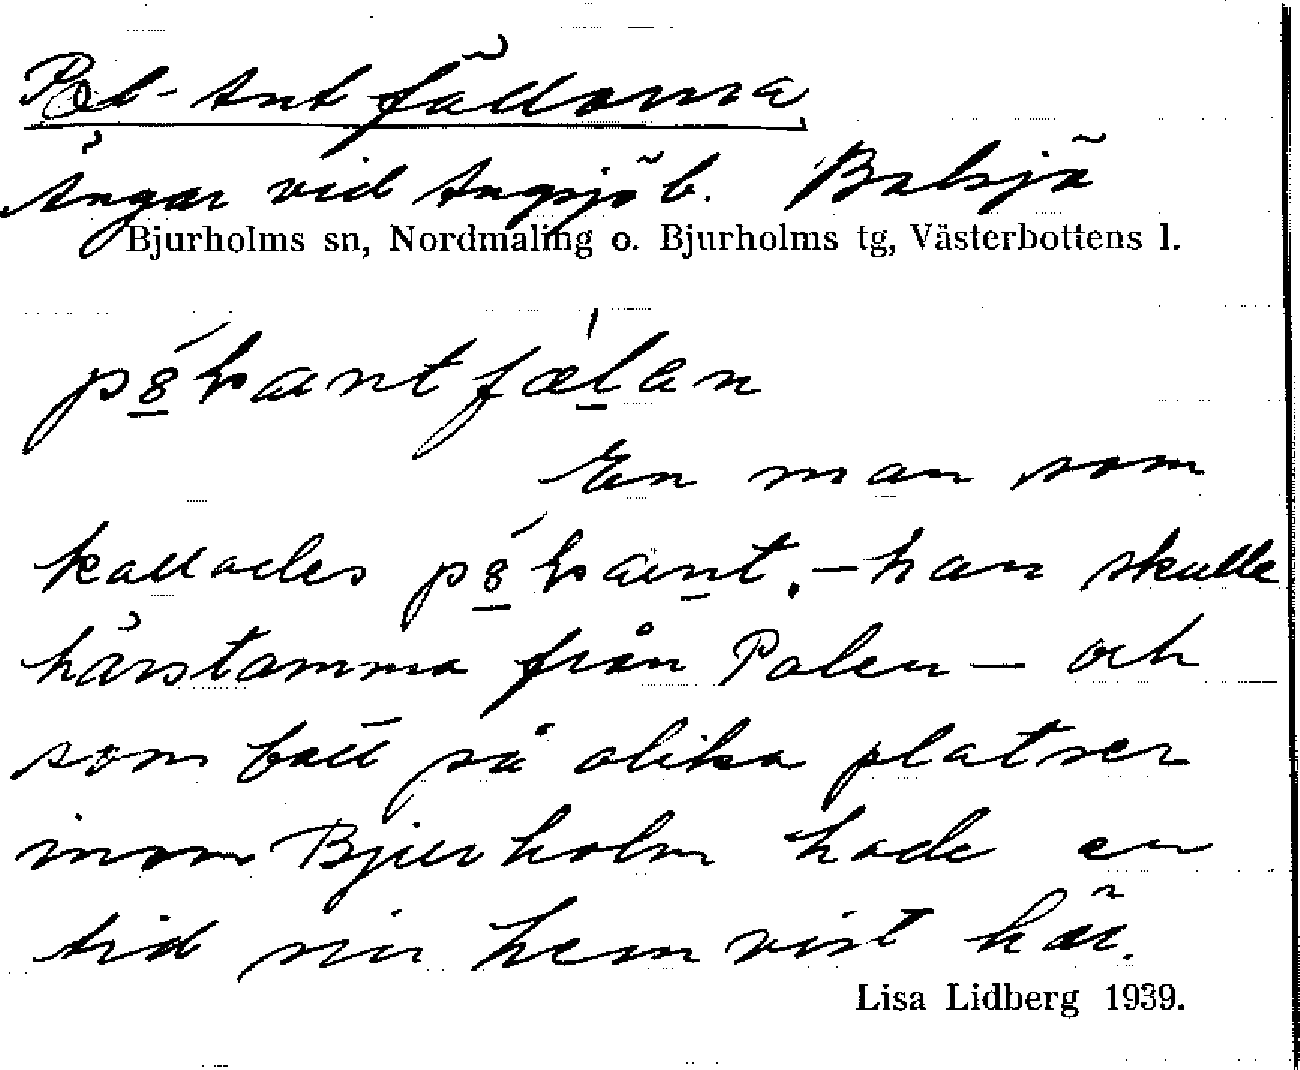 Pol-Antfällorna
Ängar vid Angsjö b. Balsjö
Bjurholms sn, Nordmaling o. Bjurholms tg, Västerbottens l.
En man som
kallades – han skulle
härstamma från Polen – och
som bott på olika platser
inom Bjurholm hade en
tid sin hemvist här.
Lisa Lidberg 1939.